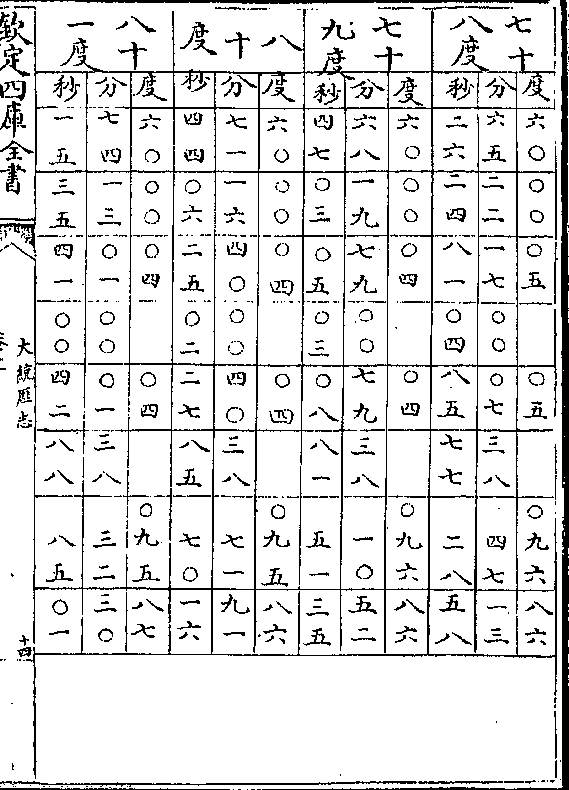 七十八度
度 六〇 〇〇 〇五 〇五 〇九六 八六
分 六五 二二 一七 〇〇 〇七 三八 四七 一三
秒 二六 二四 八一 〇四 八五 七七 二八 五八
七十九度
度 六〇 〇〇 〇四 〇四 〇九六 八六
分 六八 一九 七九 〇〇 七九 三八 一〇 五二
秒 四七 〇三 〇五 〇三 〇八 八一 五一 三五
八十度
度 六〇 〇〇 〇四 〇四 〇九五 八六
分 七一 一六 四〇 〇〇 四〇 三八 七一 九一
秒 四四 〇六 二五 〇二 二七 八五 七〇 一六
八十一度
度 六〇 〇〇 〇四 〇四 〇九五 八七
分 七四 一三 〇一 〇〇 〇一 三八 三二 三〇
秒 一五 三五 四一 〇〇 四二 八八 八五 〇一
欽定四庫全書
大統厯志
十四